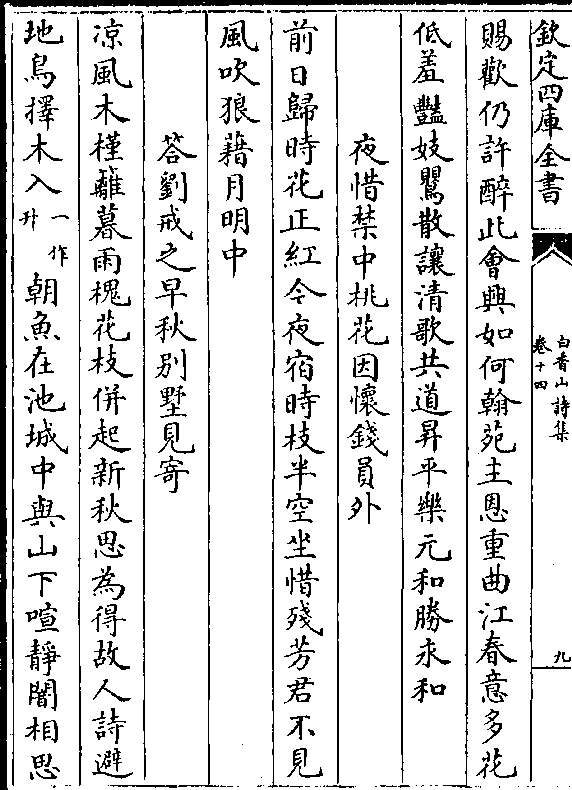 欽定四庫全書
白香山詩集
卷十四
九
賜歡仍許醉此會興如何翰苑主恩重曲江春意多花
低羞豔妓鸎散讓清歌共道昇平樂元和勝永和
夜惜禁中桃花因懷錢員外
前日歸時花正紅今夜宿時枝半空坐惜殘芳君不見
風吹狼藉月明中
答劉戒之早秋別墅見寄
凉風木槿籬暮雨槐花枝併起新秋思為得故人詩避
地鳥擇木入一作升朝魚在池城中與山下喧靜闇相思